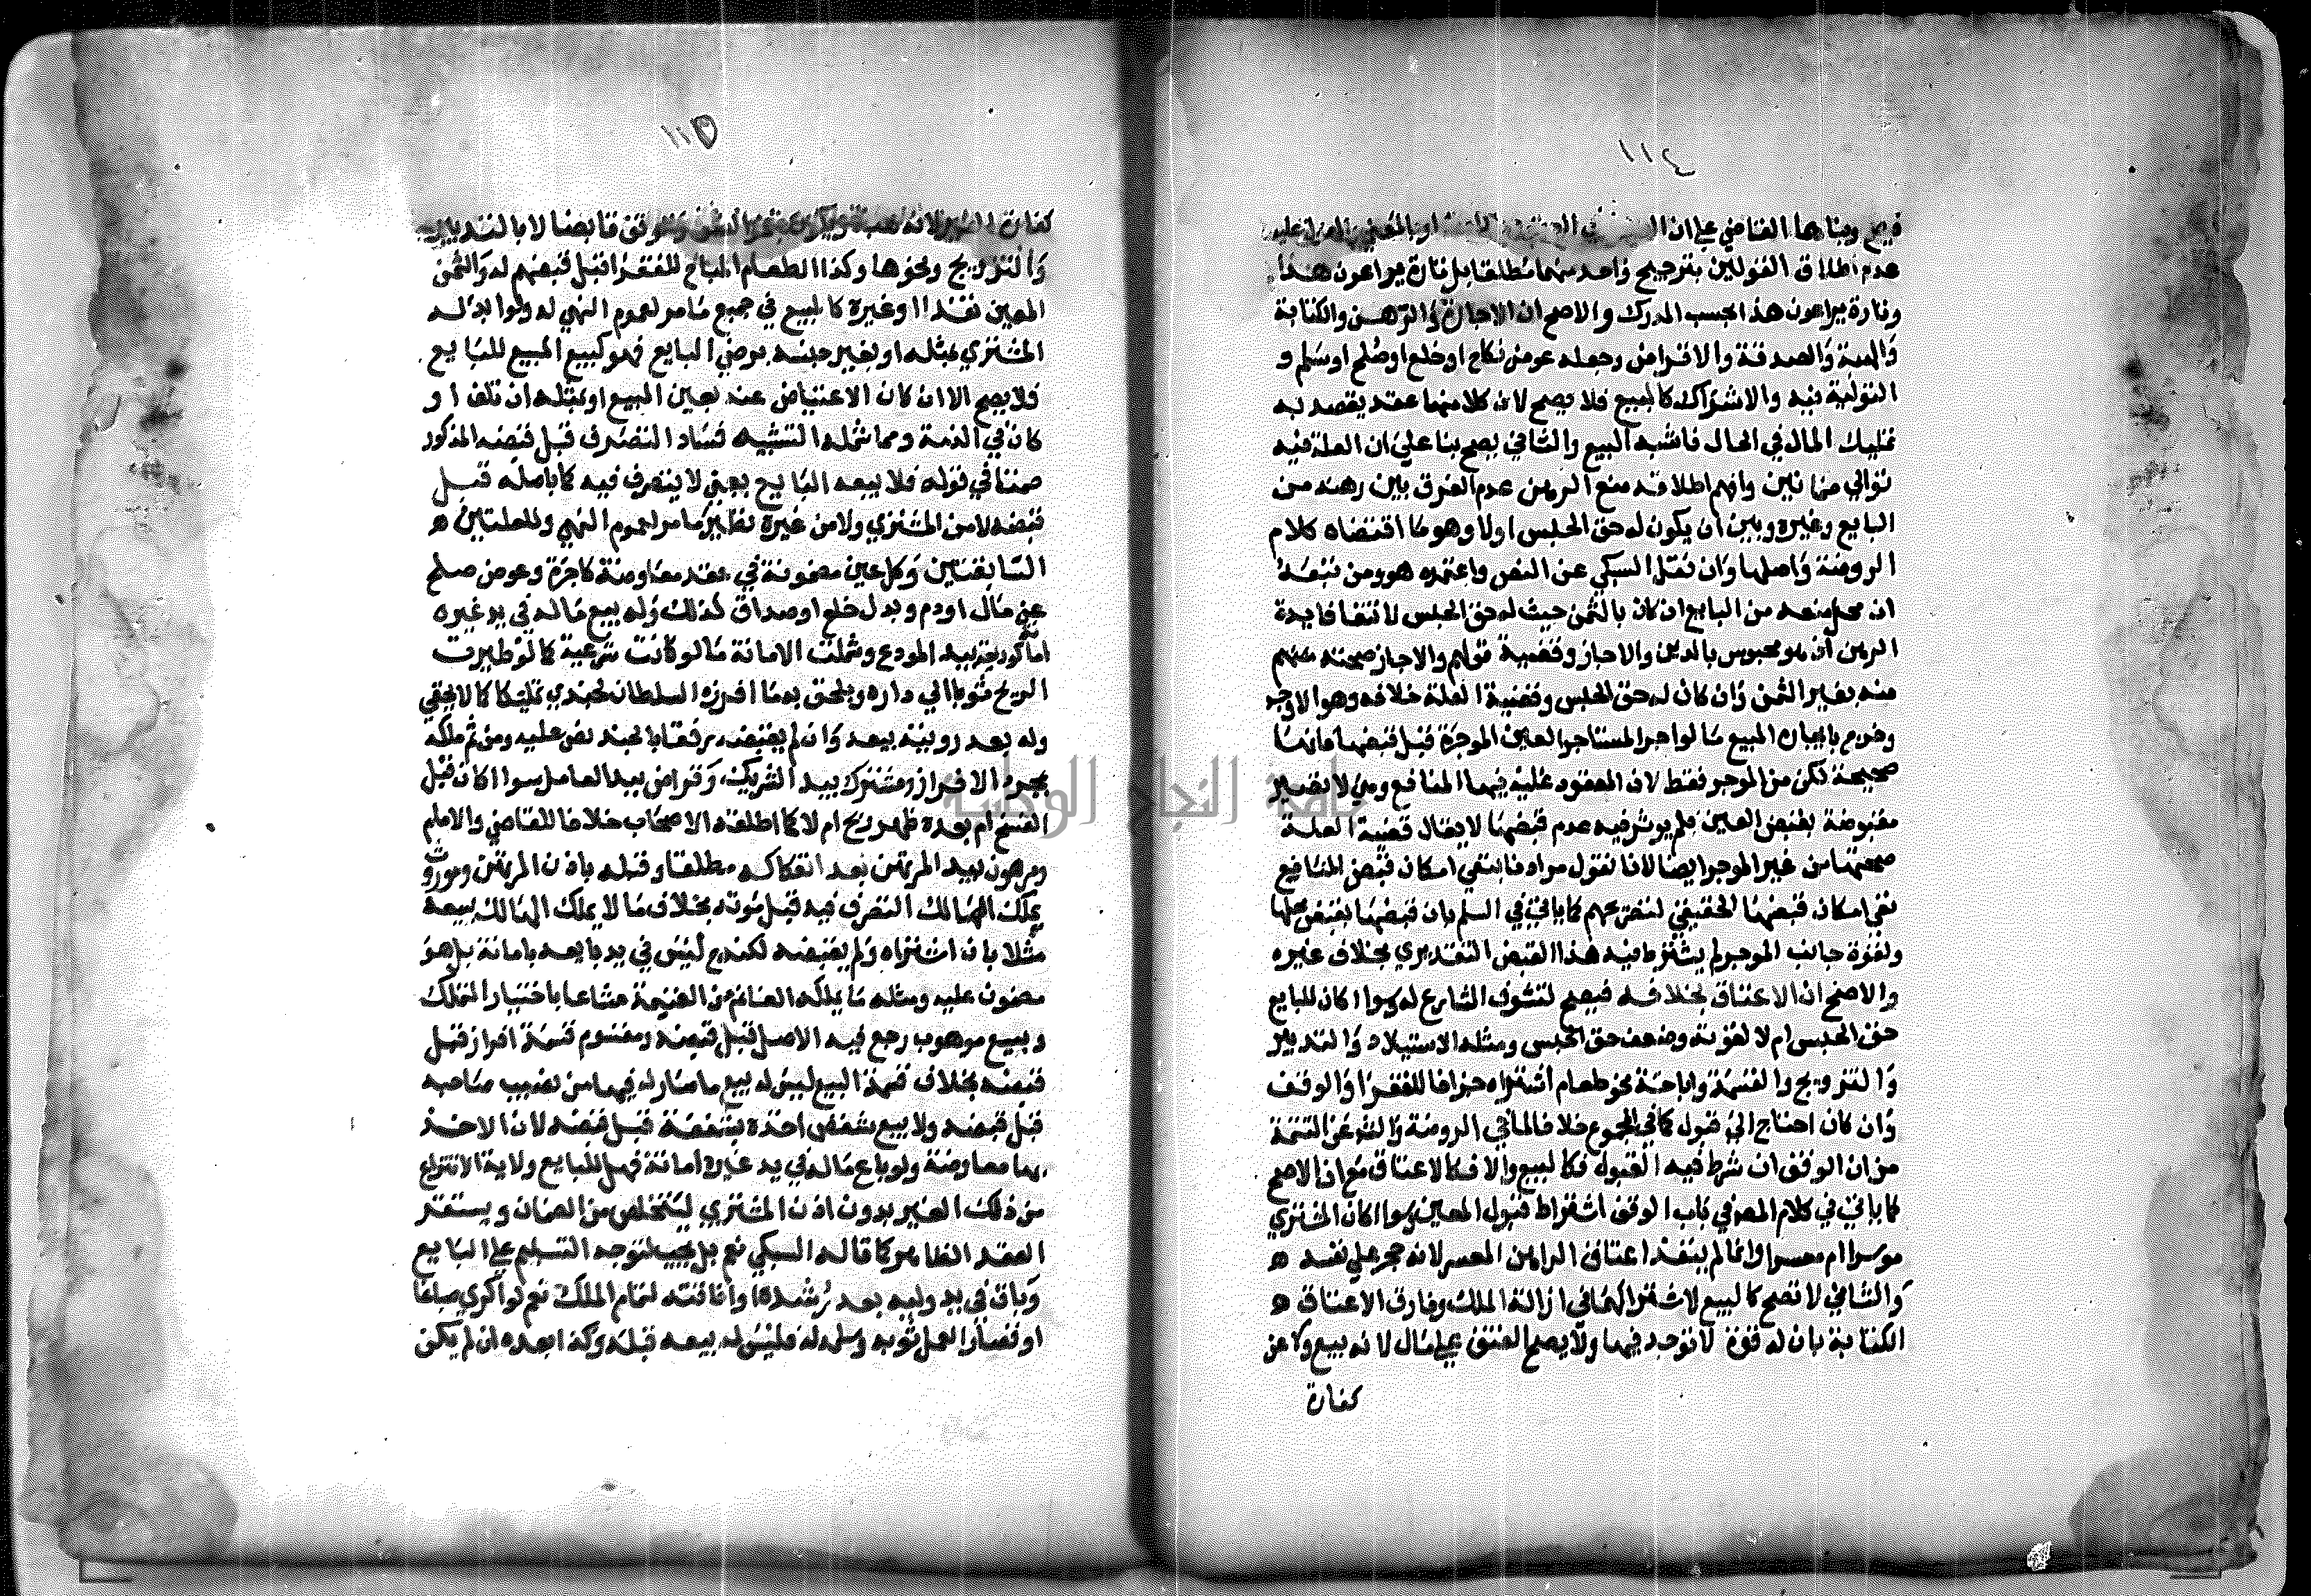 ١١٤
فيصح وبناهما القاضي على ان العبرة في العقود باللفظ او بالمعنى والمعول عليه
عدم اطلاق القولين بترجيح واحد منهما مطلقا بل تارة يراعون هذا
وتارة يراعون هذا بحسب المدرك والاصح ان الاجارة والرهن والكتابة
والهبة والصدقة والاقراض وجعله عوض نكاح او خلع او صلح او سلم و
التولية فيه والاشراك كالبيع فلا يصح لان كلا منها عقد يقصد به
تمليك المال في الحال فاشبه البيع والثاني يصح بنا على ان العلة فيه
توالي ضمانين وافهم اطلاقه منع الرهن عدم الفرق بين رهنه من
البايع وغيره وبين ان يكون له حق الحبس اولا وهو ما اقتضاه كلام
الروضة واصلها وان نقل السبكي عن النص واعتمده هو ومن تبعه
ان محل منعه من البايع ان كان بالثمن حيث له حق الحبس لانتفا فايدة
الرهن اذ هو محبوس بالدين والاجاز وقضية قولهم والاجاز صحته منهم
منه بغير الثمن وان كان له حق الحبس وقضية العلة خلافه وهو الاوجه
وخرج بايجاره المبيع ما لو اجر المستاجر العين الموجرة قبل قبضها فانها
صحيحة لكن من الموجر فقط لان المعقود عليه فيها المنافع وهي لا تصير
مقبوضة بقبض العين فلم يوثر فيه عدم قبضها لا يقال قضية العلة
صحتها من غير الموجر ايضا لانا نقول مرادنا بنفي امكان قبض المنافع
نفي امكان قبضها الحقيقي لنصرحهم كما ياتي في السلم بان قبضها بقبض محلها
ولقوة جانب الموجر لم يشترط فيه هذا القبض التقديري بخلاف غيره
والاصح ان الاعتاق بخلافه فيصح لتشوف الشارع له سوا اكان للبايع
حق الحبس ام لا لقوته وضعف حق الحبس ومثله الاستيلاد والتدبير
والتزويج والقسمة واباحة نحو طعام اشتراه جزافا للفقرا والوقف
وان كان احتاج الى قبول كما في المجموع خلافا لما في الروضة والشرح عن التتمة
من ان الوقف ان شرط فيه القبول فكالبيع والا فكالاعتاق مع ان الاصح
كما ياتي في كلام المص في باب الوقف اشتراط قبول المعين سوا اكان المشتري
موسرا ام معسرا وانما لم ينفذ اعتاق الراهن المعسر لانه حجر على نفسه
والثاني لا تصح كالبيع لاشتراكهما في ازالة الملك وفارق الاعتاق
الكتابة بان له قوة لا توجد فيها ولا يصح العتق على مال لانه بيع ولا عن
كفارة
١١٥
كفارة الغير لانه هبة ويكون به والوقف قابضا لا بالتدبير
والتزويج ونحوها وكذا الطعام المباح للفقرا قبل قبضهم له والثمن
المعين نقدا او غيره كالمبيع في جميع ما مر لعموم النهي له ولو ابدله
المشتري بمثله او بغير جنسه برضى البايع فهو كبيع المبيع للبايع
فلا يصح الا ان كان الاعتياض عنه بعين المبيع او بمثله ان تلف او
كان في الذمة ومما شمله التشبيه فساد التصرف قبل قبضه المذكور
ضمنا في قوله فلا يبعه البايع يعني لا يتصرف فيه كما باصله قبل
قبضه لا من المشتري ولا من غيره نظير ما مر لعموم النهي وللعلتين
السابقتين وكل عين مضمونة في عقد معاوضة كاجرة وعوض صلح
عن مال او دم وبدل خلع او صداق كذلك وله بيع ماله في يد غيره
امانة كوديعة بيد المودع وشملت الامانة ما لو كانت شرعية كما لو طيرت
الريح ثوبا الى داره ويلحق بها ما افرزه السلطان لجندي تمليكا كما لا يخفى
وله بعد رويته بيعه وان لم يقبضه رفقا بالجند نص عليه ومن ثم ملكه
بمجرد الافراز ومشترك بيد الشريك وقراض بيد العامل سوا اكان قبل
الفسخ ام بعده ظهر ربح ام لا كما اطلقه الاصحاب خلافا للقاضي والامام
ومرهون بيد المرتهن بعد انفكاكه مطلقا وقبله باذن المرتهن وموروث
يملك الهالك التصرف فيه قبل موته بخلاف ما لا يملك الهالك بيعه
مثلا بان اشتراه ولم يقبضه لكنه ح ليس في يد بايعه بامانة بل هو
مضمون عليه ومثله ما يملكه الغانم من الغنيمة مشاعا باختيار التملك
وبيع موهوب رجع فيه الاصل قبل قبضه ومقسوم قسمة افراز قبل
قبضه بخلاف قسمة البيع ليس له بيع ما صار له فيها من نصيب صاحبه
قبل قبضه ولا بيع شقص اخذه بشفعة قبل قبضه لان الاخذ
بها معاوضة ولو باع ماله في يد غيره امانة فهل للبايع ولاية الانتزاع
من ذلك الغير بدون اذن المشتري ليتخلص من الضمان ويستقر
العقد الظاهر كما قاله السبكي نعم بل يجب لتوجه التسليم على البايع
وباق في يد وليه بعد رشده او افاقته لتمام الملك نعم لو اكرى صباغا
او قصارا لعمل ثوبه وسلمه له فليس له بيعه قبله وكذا بعده ان لم يكن
جامعة النجاح الوطنية